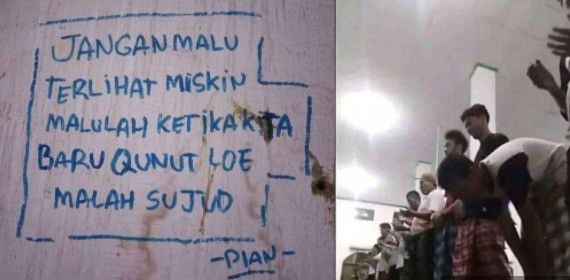 JANGAN MALU
TERLIHAT MISKIN
MALULAH KETIKA KITA
BARU QUNUT LOE
MALAH SUJUD
-PIAN-